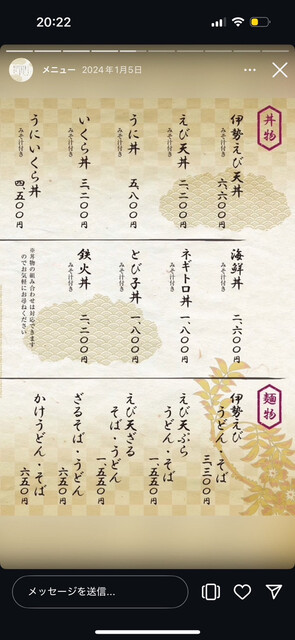 20:22
メニュー 2024年1月5日
丼物
伊勢えび天丼
みそ汁付き
六、六〇〇円
えび天丼
みそ汁付き
二、二〇〇円
うに丼
みそ汁付き
五、八〇〇円
いくら丼
みそ汁付き
三、二〇〇円
うにいくら丼
みそ汁付き
四、五〇〇円
海鮮丼
みそ汁付き
二、六〇〇円
ネギトロ丼
みそ汁付き
一、八〇〇円
とび子丼
みそ汁付き
一、八〇〇円
鉄火丼
みそ汁付き
二、二〇〇円
※丼物の組み合わせは対応できます
のでお気軽にお尋ねください
麺物
伊勢えび
うどん・そば
三、三〇〇円
えび天ぷら
うどん・そば
一、五五〇円
えび天ざる
そば・うどん
一、五五〇円
ざるそば・うどん
六五〇円
かけうどん・そば
六五〇円
メッセージを送信...